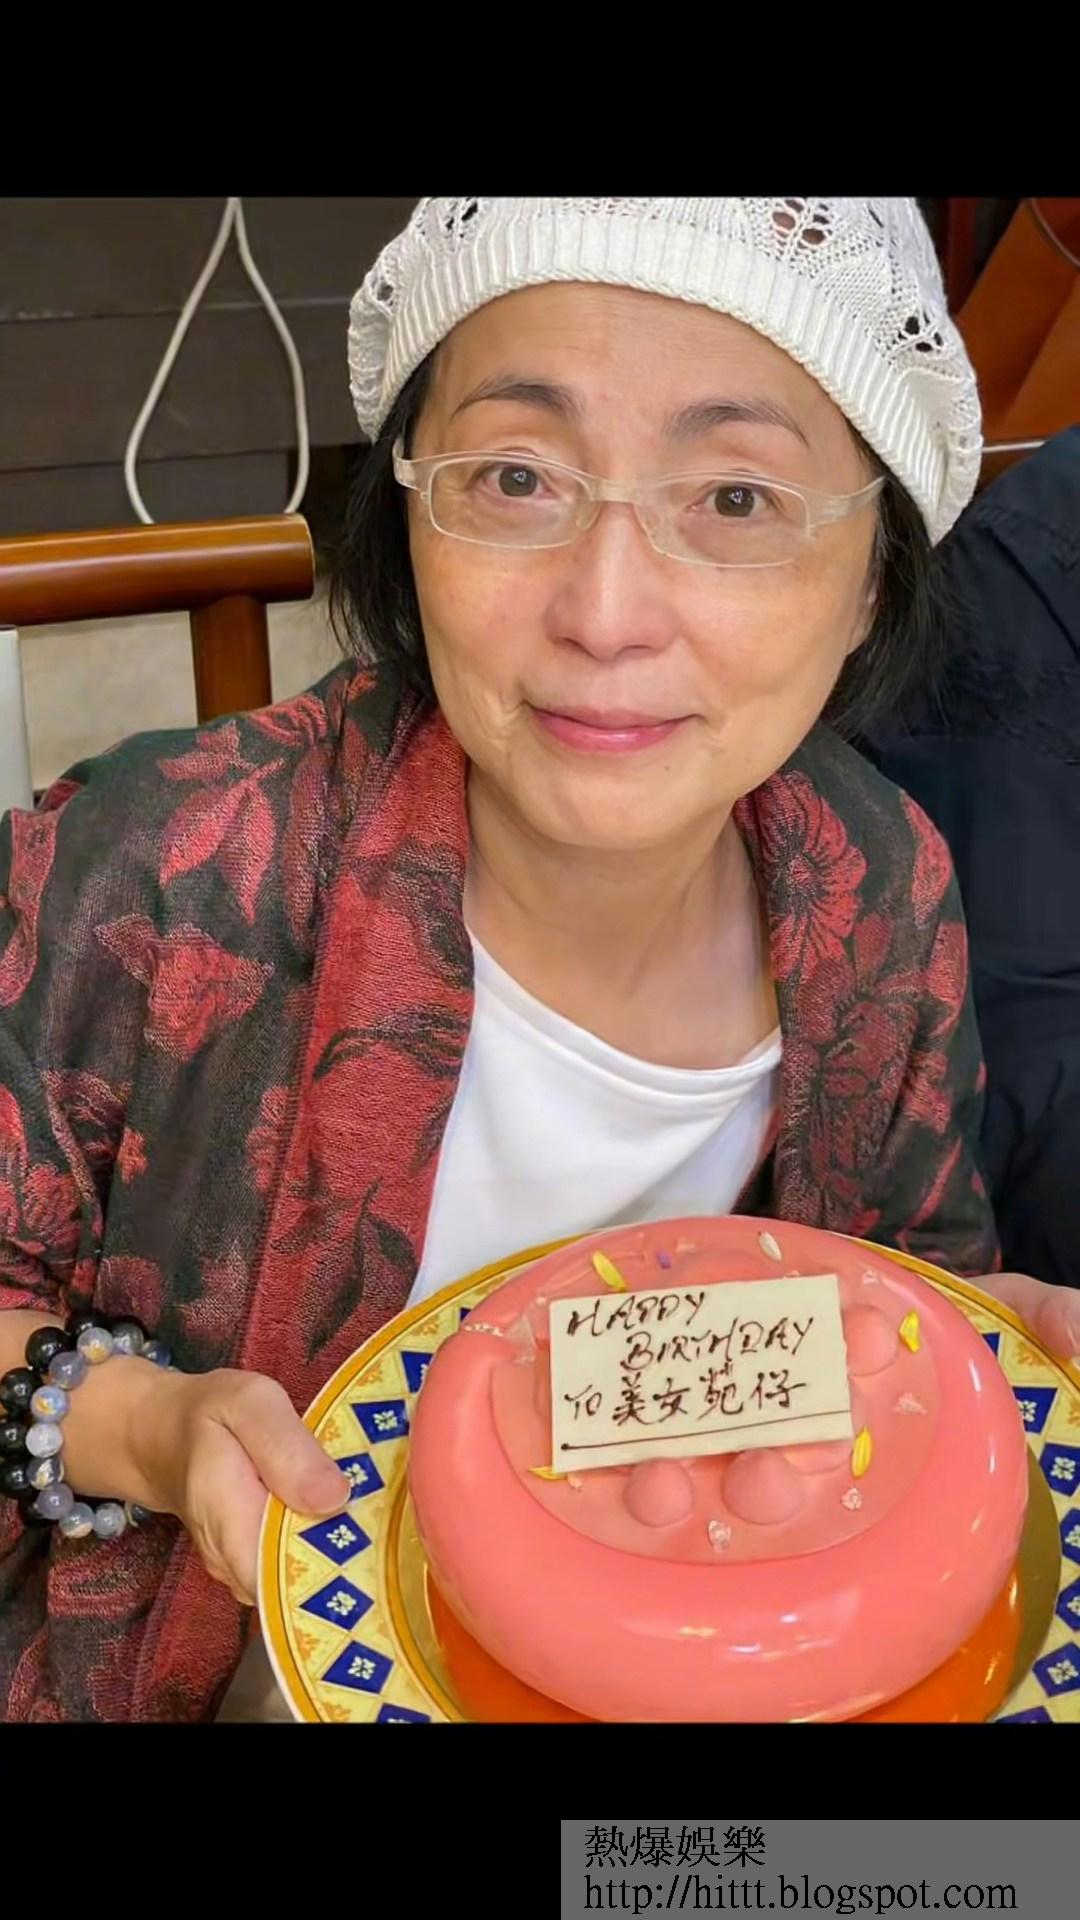 HAPPY
BIRTHDAY
TO 美女苑仔
熱爆娛樂
http://hittt.blogspot.com